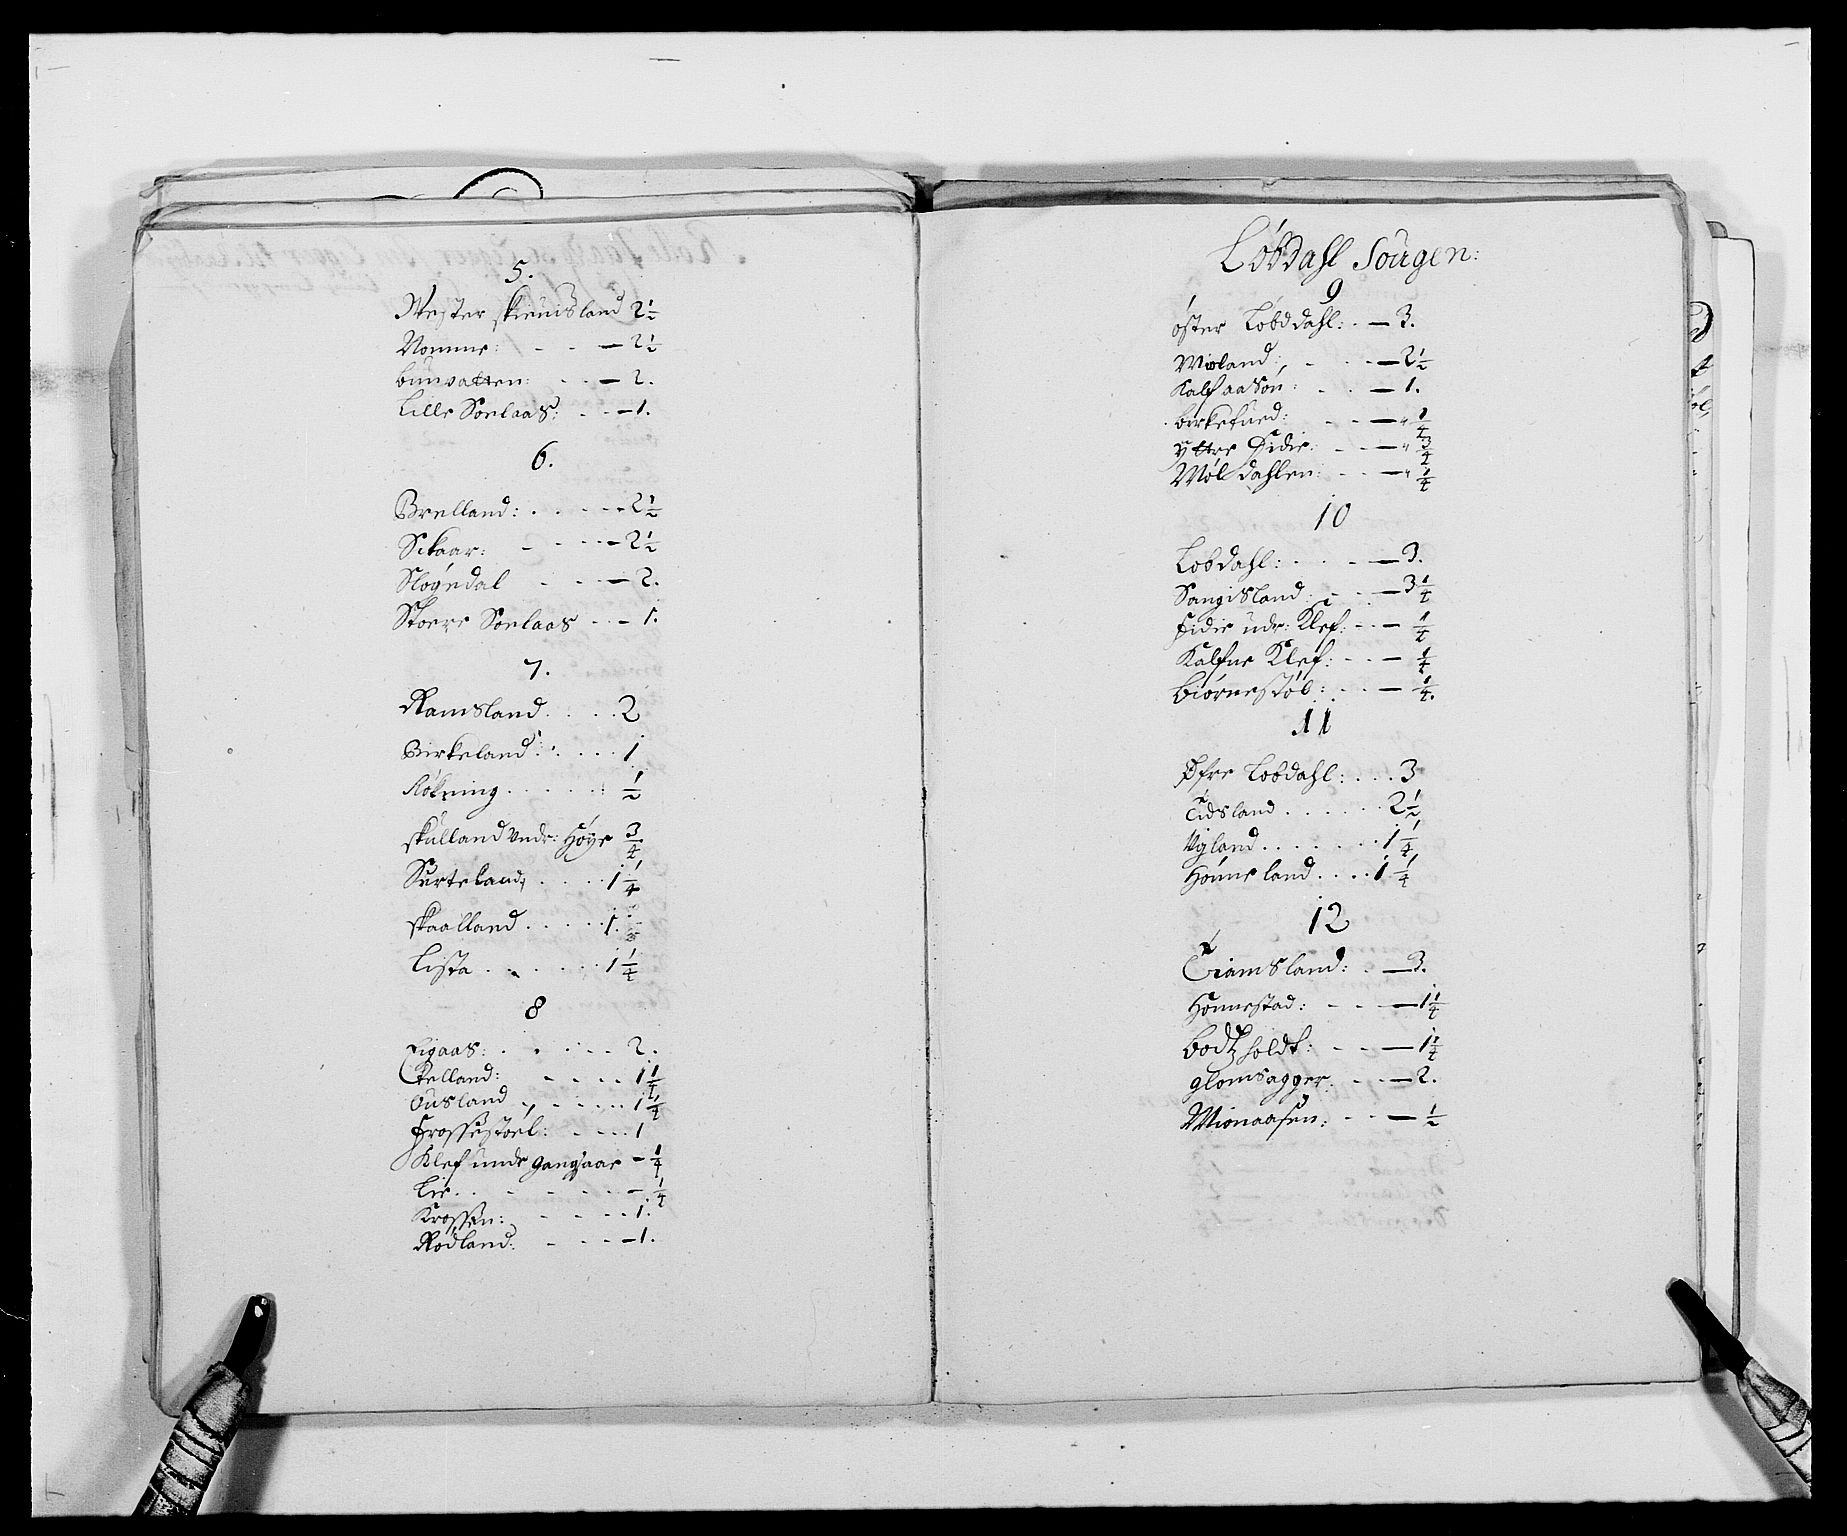 5.
Wester skieuisland 2½
Nomme: - - - 2½
bunvatten: - - - 2.
Lille Sonlaas: - - - 1.
6.
Brelland: . . . . . 2½
Sckaar: - - - - 2½
Sløgedal - - - 2.
Stoere Sonlaas - - - 1.
7.
Ramsland. . . . . 2
Birkeland: . . . . 1
Røkning. . . . . . ½
skulland vndr: Høye ¾
Surteland, . . . . 1¼
skaalland. . . . . 1.
Lista . . . . . . 1¼
8
Eigaas: . . . . . . 2.
Telland: - . . . . 1¼
Ousland - - - - . . 1¼
Frossestoel: - - - - 1
Klef undr gangsaae - ¼
Lie. . - - - - - - - ¼
Krossen: - - - . . 1.
Rødland: - - - - - 1.
Løbdahl Sougen:
9
øster Lobddahl: . - 3.
Mioland: - - - - 2½
Kalf aasen: - - - - 1.
birkefued: - - - - " ¼
yttre Eidie: - - - - " ¾
Møl dahlen: - - - - " ¼
10
Lobdahl: . . . . - 3.
Sangisland: - - - - 3¼
Eidie udr: Klef: - - - ¼
Kalfue Klef: - - - - ¼
biørnestøl: - - - - ¼.
11
Øfre Lobdahl: . . . 3
Tidsland . . . . . . 2½
Vgland. . . . . . . 1¼
Honne land. . . . 1¼
12
Tiamsland: . - 3.
Honnestad: - - - - 1¼
bodtzholdt: - - - - 1¼
glomsagger. - - - - 2.
Mionaasen: - - - - ½